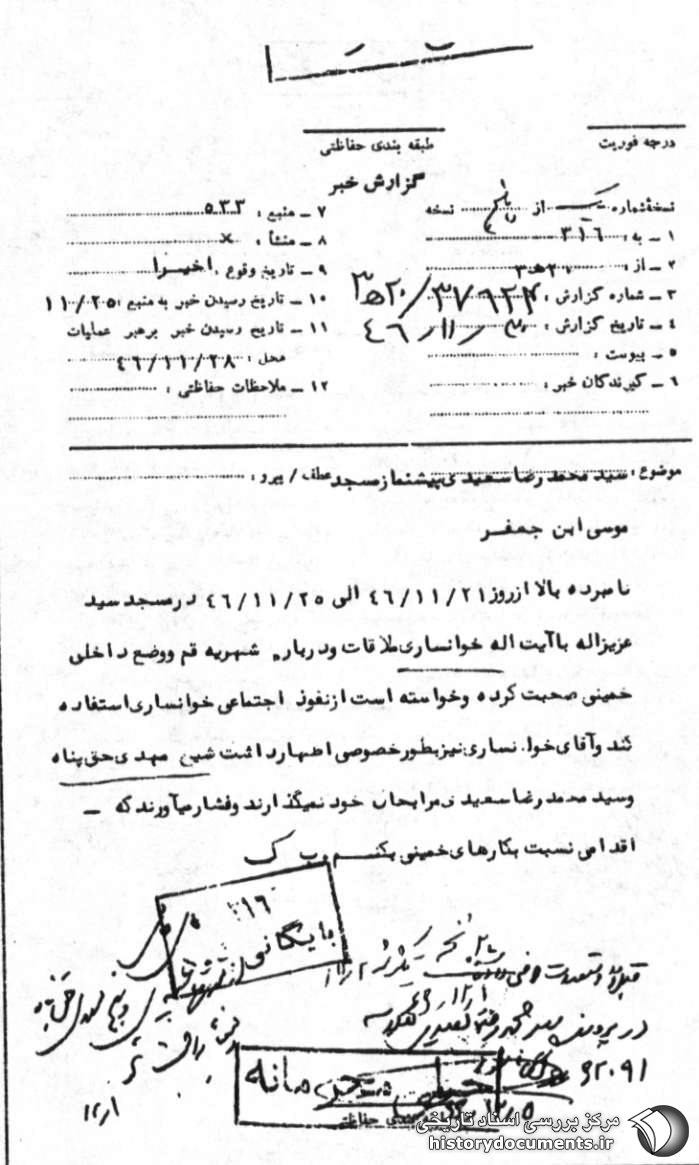 درجه فوریت
طبقه بندی حفاظتی
گزارش خبر
نسخهٔ شماره یک از نسخه
۱ ـ به : ۳۱٦
۲ ـ از : ۲۰ ه ۳
۳ ـ شماره گزارش : ۳۷٦۲۴ / ۲۰ ه ۳
۴ ـ تاریخ گزارش : ۳۰ ر ۱۱ ر ٤٦
۵ ـ پیوست :
۶ ـ گیرندگان خبر :
۷ ـ منبع : ۵۳۳
۸ ـ منشأ : ×
۹ ـ تاریخ وقوع : اخیرا
۱۰ ـ تاریخ رسیدن خبر به منبع : ۱۱/۲۵
۱۱ ـ تاریخ رسیدن خبر برهبر عملیات
محل : ٤٦/۱۱/۲۸
۱۲ ـ ملاحظات حفاظتی :
موضوع : سید محمد رضا سعیدی پیشنماز مسجد عطف / پیرو :
موسی ابن جعفر
نامبرده بالا از روز ٤٦/۱۱/۲۱ الی ٤٦/۱۱/۲۵ در مسجد سید
عزیزاله با آیت اله خوانساری ملاقات و درباره شهریه قم و وضع داخلی
خمینی صحبت کرده و خواسته است از نفوذ اجتماعی خوانساری استفاده
کند و آقای خوانساری نیز بطور خصوصی اظهار داشت شیخ مهدی حق پناه
و سید محمد رضا سعیدی مرا بحال خود نمیگذارند و فشار میآورند که ـ
اقدامی نسبت بکارهای خمینی بکنم و ب ک
۱٦
بایگانی
در پرونده سید محمد رضا سعیدی
۹۲۰۹۱
خیلی محرمانه
طبقه بندی حفاظتی
مرکز بررسی اسناد تاریخی
historydocuments.ir